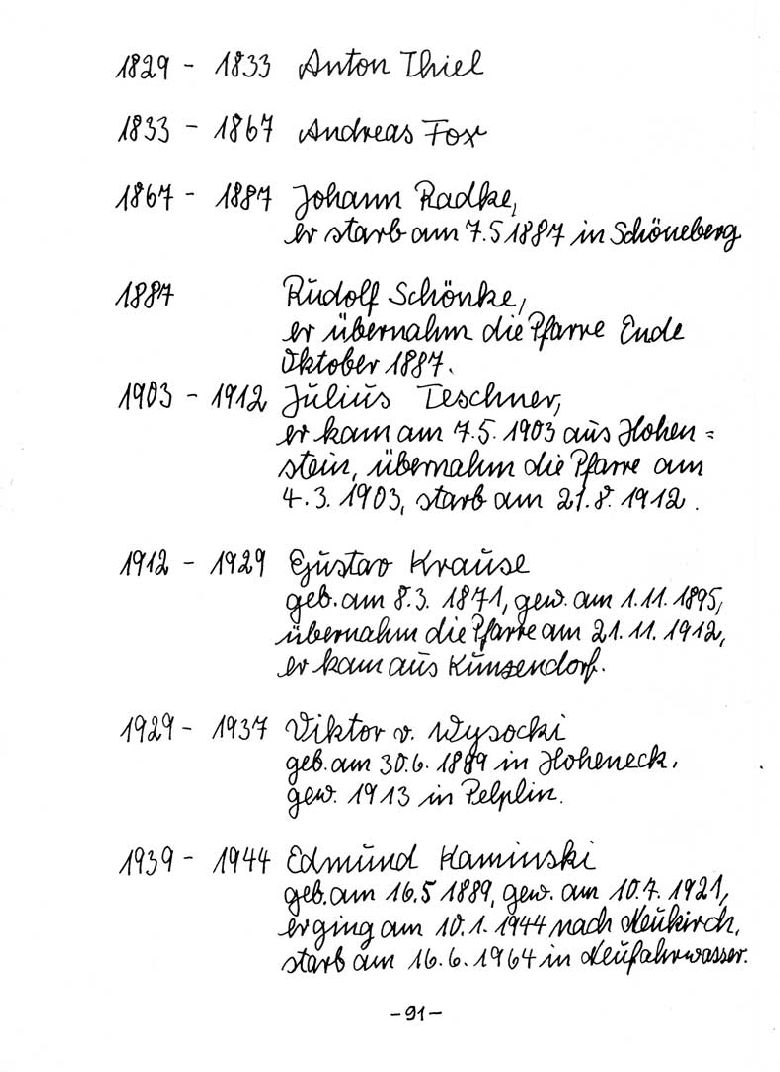 1829 - 1833 Anton Thiel
1833 - 1867 Andreas Fox
1867 - 1887 Johann Radke,
er starb am 7.5 1887 in Schöneberg
1887 Rudolf Schönke,
er übernahm die Pfarre Ende
Oktober 1887.
1903 - 1912 Julius Teschner,
er kam am 7.5. 1903 aus Hohen =
stein, übernahm die Pfarre am
4.3. 1903, starb am 21.8. 1912.
1912 - 1929 Gustav Krause
geb. am 8.3. 1871, gew. am 1.11. 1895,
übernahm die Pfarre am 21.11. 1912,
er kam aus Kunzendorf.
1929 - 1937 Viktor v. Wysocki
geb. am 30.6. 1889 in Hoheneck.
gew. 1913 in Pelplin.
1939 - 1944 Edmund Kaminski
geb. am 16.5 1889, gew. am 10.7. 1921,
er ging am 10.1. 1944 nach Neukirch,
starb am 16.6.1964 in Neufahrwasser.
-91-